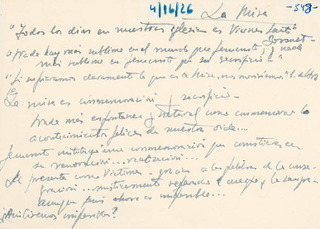 4/16/26 La Misa -548-
"Todos los días en nuestras iglesias es Viernes Santo"
"Nada hay más sublime en el mundo que Jesucristo, y nada
más sublime en Jesucristo que su sacrificio" Bossuet
"Si supiéramos claramente lo que es la Misa, nos moriríamos"
La misa es conmemoración y sacrificio
Nada más espontáneo y natural como conmemorar los
acontecimientos felices de nuestra vida...
Jesucristo una conmemoración que consistiera en
su renovación...
Se presenta como víctima - gracias a las palabras de la consa-
gración... místicamente separados el cuerpo y la sangre
aunque real ahora es impasible...
¿Asistiremos impasibles?